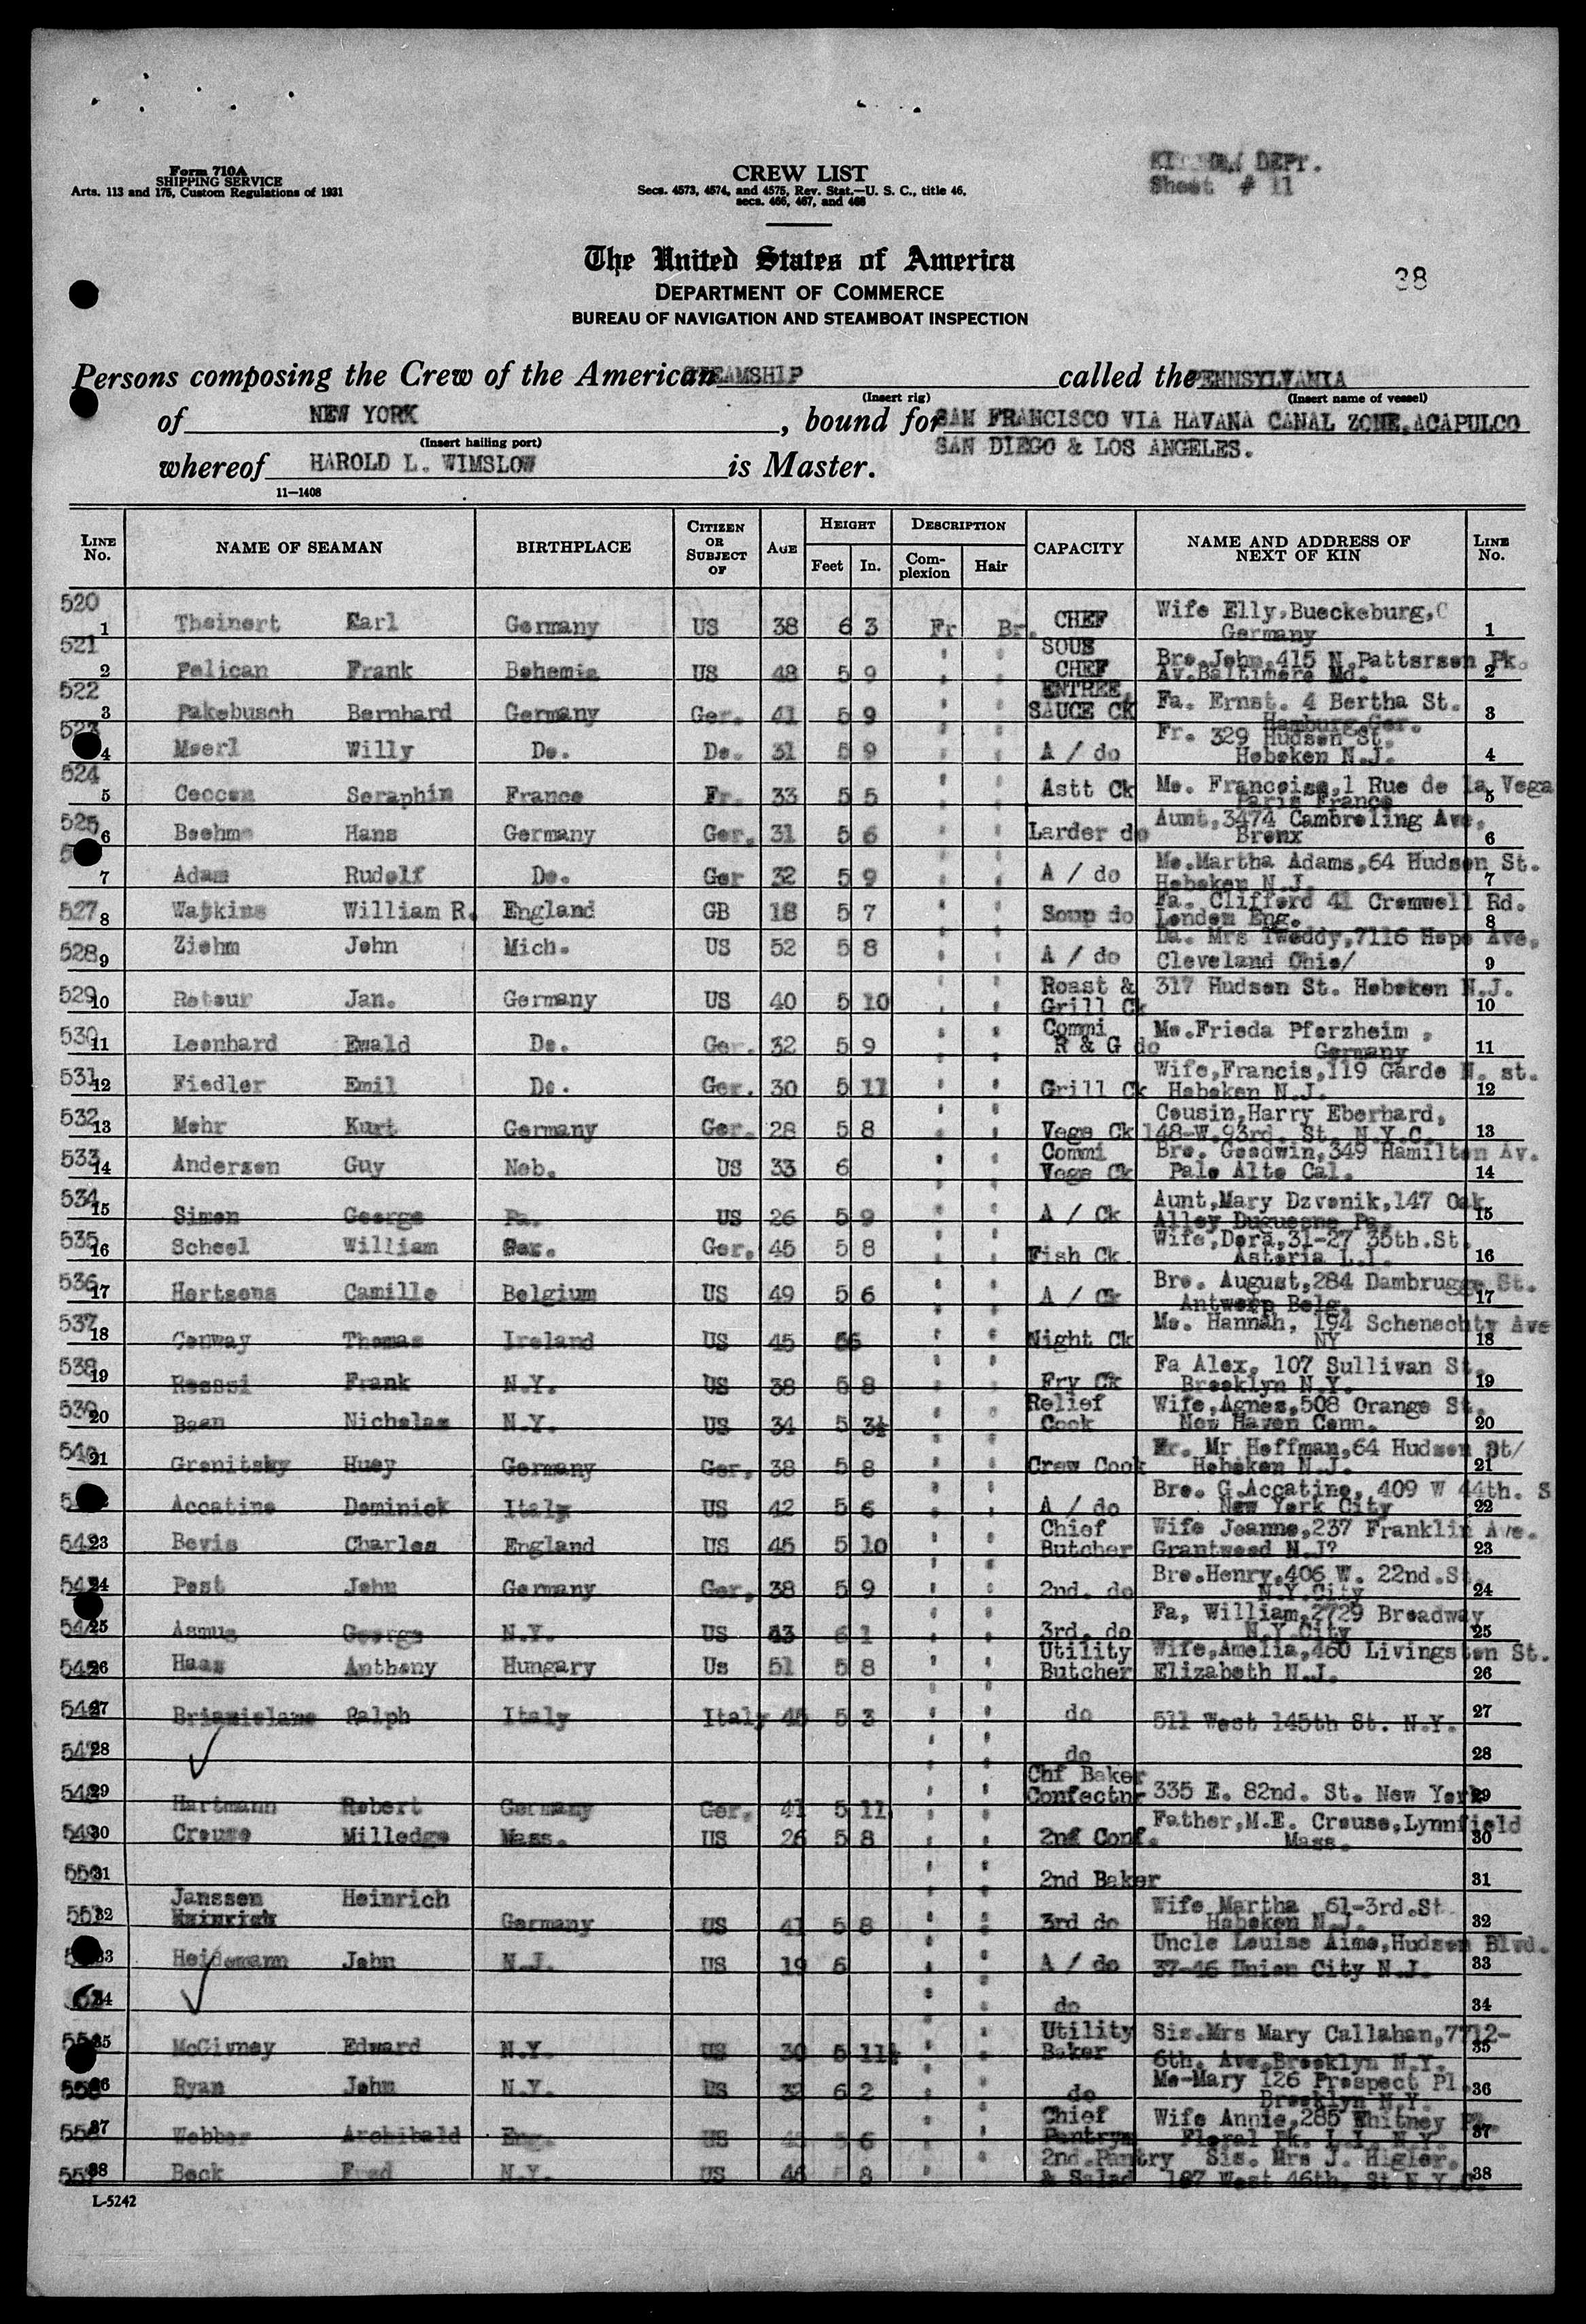 Form 710A
SHIPPING SERVICE
Arts. 113 and 175, Custom Regulations of 1931
CREW LIST
Secs. 4573, 4574, and 4575, Rev. Stat.—U. S. C., title 46,
secs. 466, 467, and 468
DEPT.
Sheet # 11
The United States of America
DEPARTMENT OF COMMERCE
BUREAU OF NAVIGATION AND STEAMBOAT INSPECTION
38
Persons composing the Crew of the American STEAMSHIP called the PENNSYLVANIA
(Insert rig) (Insert name of vessel)
of NEW YORK, bound for SAN FRANCISCO VIA HAVANA CANAL ZONE, ACAPULCO
(Insert hailing port) SAN DIEGO & LOS ANGELES.
whereof HAROLD L. WIMSLOW is Master.
11—1408
LINE No. NAME OF SEAMAN BIRTHPLACE CITIZEN OR SUBJECT OF AGE HEIGHT Feet In. DESCRIPTION Complexion Hair CAPACITY NAME AND ADDRESS OF NEXT OF KIN LINE No.
520 1 Theinert Earl Germany US 38 6 3 Fr Br. CHEF Wife Elly, Bueckeburg, Germany 1
521 2 Pelican Frank Bohemia US 48 5 9 " " SOUS CHEF Bro. John, 415 N. Patterson Pk. Av. Baltimore Md. 2
522 3 Pakebusch Bernhard Germany Ger. 41 5 9 " " ENTREE SAUCE CK Fa. Ernst. 4 Bertha St. Hamburg, Ger. 3
523 4 Moerl Willy Do. Do. 31 5 9 " " A / do Fr. 329 Hudson St. Hoboken N.J. 4
524 5 Coccoz Seraphin France Fr. 33 5 5 " " Astt Ck Mo. Francoise, 1 Rue de la Vega Paris France 5
525 6 Boehme Hans Germany Ger. 31 5 6 " " Larder do Aunt, 3474 Cambreling Ave, Bronx 6
7 Adam Rudolf Do. Ger 32 5 9 " " A / do Mo. Martha Adams, 64 Hudson St. Hoboken N.J. 7
527 8 Watkins William R. England GB 18 5 7 " " Soup do Fa. Clifford 41 Cromwell Rd. London Eng. 8
528 9 Ziehm John Mich. US 52 5 8 " " A / do Da. Mrs Tweddy, 7116 Hope Ave, Cleveland Ohio/ 9
529 10 Retour Jan. Germany US 40 5 10 " " Roast & Grill Ck 317 Hudson St. Hoboken N.J. 10
530 11 Leonhard Ewald Do. Ger. 32 5 9 " " Commi R & G do Mo. Frieda Pforzheim, Germany 11
531 12 Fiedler Emil Do. Ger. 30 5 11 " " Grill Ck Wife, Francis, 119 Garde N. st. Hoboken N.J. 12
532 13 Mohr Kurt Germany Ger. 28 5 8 " " Vege Ck Cousin, Harry Eberhard, 148-W. 93rd. St. N.Y.C. 13
533 14 Anderson Guy Neb. US 33 6 " " Commi Vege Ck Bro. Goodwin, 349 Hamilton Av. Palo Alto Cal. 14
534 15 Simon George Pa. US 26 5 9 " " A / Ck Aunt, Mary Dzvonik, 147 Oak Alley Duquesne Pa. 15
535 16 Scheel William Ger. Ger. 45 5 8 " " Fish Ck. Wife, Dora, 31-27 35th. St. Astoria L.I. 16
536 17 Hertsens Camille Belgium US 49 5 6 " " A / Ck Bro. August, 284 Dambrugge St. Antwerp Belg. 17
537 18 Conway Thomas Ireland US 45 56 " " Night Ck Mo. Hannah, 194 Schenechty Ave NY 18
538 19 Rossi Frank N.Y. US 38 5 8 " " Fry Ck Fa Alex, 107 Sullivan St. Brooklyn N.Y. 19
539 20 Baan Nicholas N.Y. US 34 5 3½ " " Relief Cook Wife, Agnes, 508 Orange St. New Haven Conn. 20
540 21 Grenitsky Huey Germany Ger. 38 5 8 " " Crew Cook Fr. Mr Hoffman, 64 Hudson St/ Hoboken N.J. 21
Accatino Dominick Italy US 42 5 6 " " A / do Bro. G. Accatino, 409 W 44th. S New York City 22
542 23 Bevis Charles England US 45 5 10 " " Chief Butcher Wife Jeanne, 237 Franklin Ave. Grantwood N.J? 23
543 24 Post John Germany Ger. 38 5 9 " " 2nd. do Bro. Henry, 406 W. 22nd. St. N.Y. City 24
544 25 Asmus George N.Y. US 43 6 1 " " 3rd. do Fa, William, 2729 Broadway N.Y. City 25
545 26 Haas Anthony Hungary Us 51 5 8 " " Utility Butcher Wife, Amelia, 460 Livingston St. Elizabeth N.J. 26
546 27 Ralph Italy Italy 45 5 3 " " do 511 West 145th St. N.Y. 27
547 28 " " do 28
548 29 Hartmann Robert Germany Ger. 41 5 11 " " Chf Baker Confectnr 335 E. 82nd. St. New York 29
549 30 Crouse Milledge Mass. US 26 5 8 " " 2nd Conf. Father, M.E. Crouse, Lynnfield Mass. 30
550 31 " " 2nd Baker 31
551 32 Janssen Heinrich Germany US 41 5 8 " " 3rd do Wife Martha 61-3rd. St. Hoboken N.J. 32
33 Heidemann John N.J. US 19 6 " " A / do Uncle Louise Aimo, Hudson Blvd. 37-46 Union City N.J. 33
34 " " do 34
35 McGivney Edward N.Y. US 30 5 11½ " " Utility Baker Sis. Mrs Mary Callahan, 7712- 6th. Ave. Brooklyn N.Y. 35
555 36 Ryan John N.Y. US 32 6 2 " " do Mo-Mary 126 Prospect Pl. Brooklyn N.Y. 36
556 37 Webber Archibald Eng. US 5 6 " " Chief Pantrym Wife Annie, 285 Whitney Pl. Floral Pk. L.I. N.Y. 37
557 38 Beck Fred N.Y. US 46 5 8 " " 2nd. Pantry & Salad Sis. Mrs J. Higler. 167 West 46th. St N.Y.C. 38
L-5242